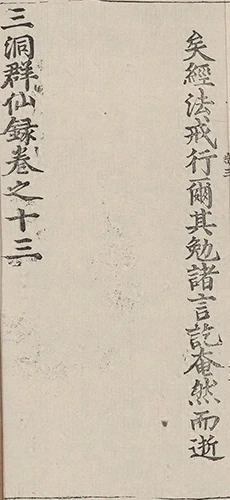 矣經法戒行爾其勉諸言訖奄然而逝
三洞群仙録卷之十三